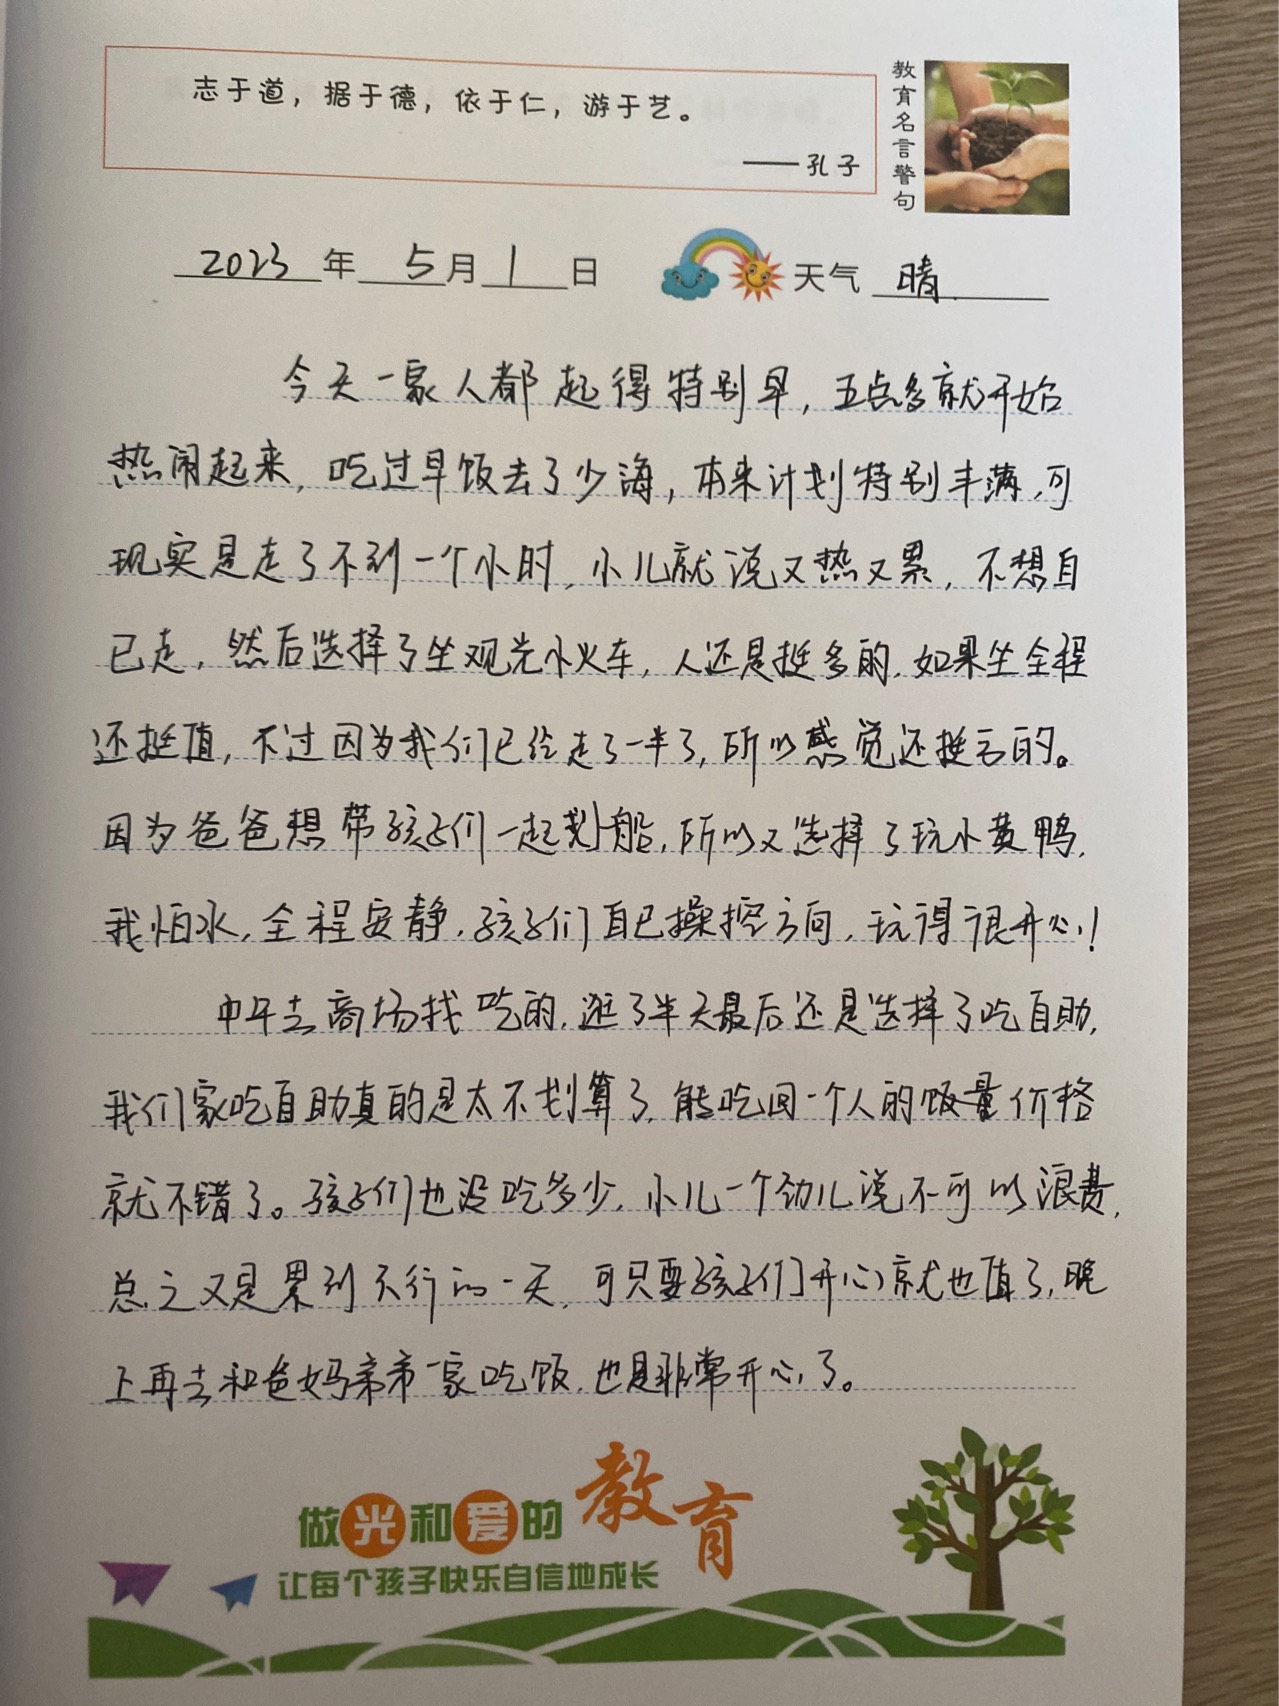 志于道，据于德，依于仁，游于艺。
——孔子
教育名言警句
2023年5月1日 天气 晴
今天一家人都起得特别早，五点多就开始
热闹起来，吃过早饭去了少海，本来计划特别丰满，可
现实是走了不到一个小时，小儿就说又热又累，不想自
已走，然后选择了坐观光小火车，人还是挺多的，如果坐全程
还挺值，不过因为我们已经走了一半了，所以感觉还挺亏的。
因为爸爸想带孩子们一起划船，所以又选择了玩小黄鸭，
我怕水，全程安静，孩子们自已操控方向，玩得很开心！
中午去商场找吃的，逛了半天最后还是选择了吃自助，
我们家吃自助真的是太不划算了，能吃回一个人的饭量价格
就不错了。孩子们也没吃多少，小儿一个劲儿说不可以浪费，
总之又是累到不行的一天，可只要孩子们开心就也值了，晚
上再去和爸妈弟弟一家吃饭，也是非常开心了。
做光和爱的教育
让每个孩子快乐自信地成长